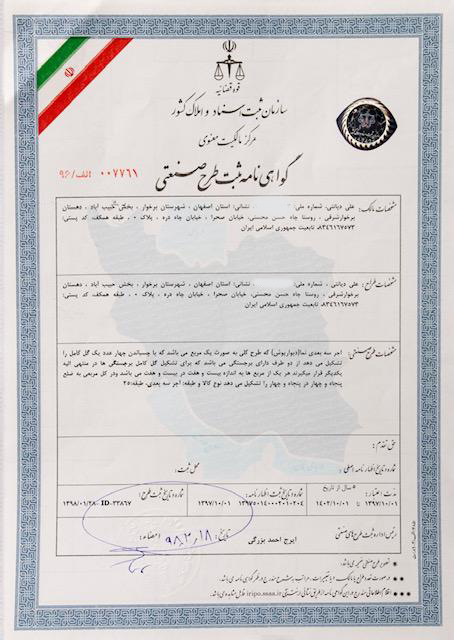 قوه قضائیه
سازمان ثبت اسناد و املاک کشور
مرکز مالکیت معنوی
گواهی نامه ثبت طرح صنعتی
الف/۹۶ ۰۰۷۷۶۱
مشخصات مالک: علی دیانتی، شماره ملی: نشانی: استان اصفهان ، شهرستان برخوار ، بخش حبیب آباد ، دهستان
برخوارشرقی ، روستا چاه حسن محسنی، خیابان صحرا ، خیابان چاه دره ، پلاک ۰ ، طبقه همکف، کد پستی:
۸۳۴۶۱۶۷۵۷۳ تابعیت جمهوری اسلامی ایران
مشخصات طراح: علی دیانتی، شماره ملی: نشانی: استان اصفهان ، شهرستان برخوار ، بخش حبیب آباد ، دهستان
برخوارشرقی ، روستا چاه حسن محسنی، خیابان صحرا ، خیابان چاه دره ، پلاک ۰ ، طبقه همکف، کد پستی:
۸۳۴۶۱۶۷۵۷۳ تابعیت جمهوری اسلامی ایران
مشخصات طرح صنعتی: آجر سه بعدی نما(دیوارپوش) که طرح کلی به صورت یک مربع می باشد که با چسباندن چهار عدد یک گل کامل را
تشکیل می دهد از دو طرف دارای برجستگی می باشد که برای تشکیل گل کامل برجستگی ها در منتهی الیه
یکدیگر قرار میگیرند هر یک از مربع ها به اندازه بیست و هفت در بیست و هفت می باشد ودر کل مربعی به ضلع
پنجاه و چهار در پنجاه و چهار را تشکیل می دهد نوع کالا و طبقه: آجر سه بعدی، طبقه:۲۵
حق تقدم :
شماره و تاریخ اظهار نامه اصلی : محل ثبت :
مدت اعتبار: ۵ سال از تاریخ
۱۳۹۷/۱۰/۰۱ تا ۱۴۰۲/۱۰/۰۱
شماره و تاریخ ثبت اظهار نامه:
۱۳۹۷۵۰۱۴۰۰۰۲۰۱۰۲۰۴
۱۳۹۷/۱۰/۰۱
شماره و تاریخ ثبت طرح:
۱۳۹۸/۰۱/۲۸ ID-۳۳۸۶۷
رئیس اداره ثبت طرح های صنعتی ایرج احمد بزرگی تاریخ: ۹۸,۲,۱۸ امضاء:
تصویر طرح صنعتی ضمیمه می باشد.